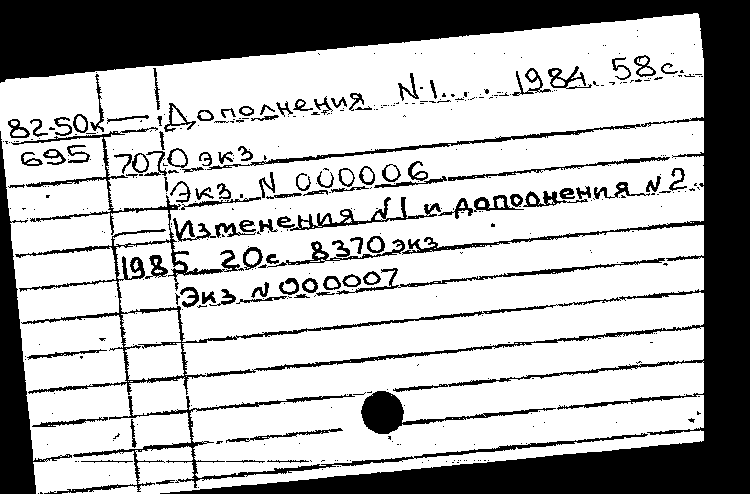 82-50к — Дополнения N1... 1984. 58с.
695 7070 экз.
Экз. N 000006.
— Изменения N1 и дополнения N2..
1985. 20с. 8370 экз
Экз. N 000007